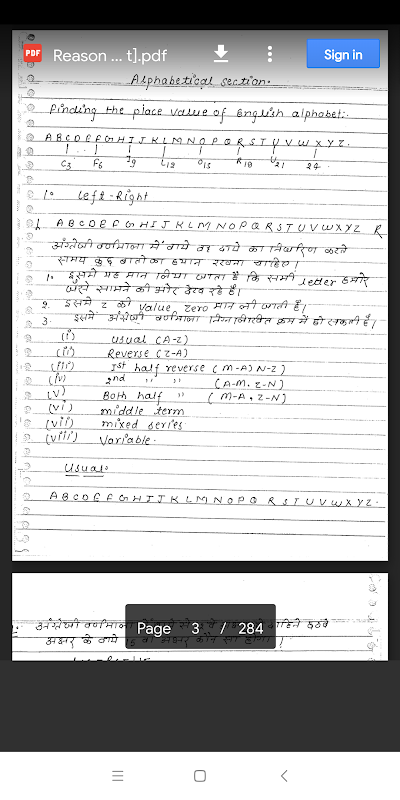 Reason ... t].pdf
Sign in
Alphabetical section.
Finding the place value of English alphabet:.
A B C D E F G H I J K L M N O P Q R S T U V W X Y Z.
C3 F6 I9 L12 O15 R18 U21 24
1. Left - Right
L A B C D E F G H I J K L M N O P Q R S T U V W X Y Z R
अंग्रेजी वर्णमाला में बाये का निर्धारण करते
समय कुछ बातों का ध्यान रखना चाहिए।
1. इसमें यह मान लिया जाता है कि सभी letter हमारे
सामने की ओर देख रहे हैं।
2. इसमें Z की value zero मान ली जाती है।
3. इसमें अंग्रेजी वर्णमाला निम्नलिखित क्रम में हो सकती है।
(i) usual (A-Z)
(ii) Reverse (Z-A)
(iii) Ist half reverse (M-A) N-Z)
(iv) 2nd " " (A-M, Z-N)
(v) Both half " (M-A, Z-N)
(vi) middle term
(vii) mixed series
(viii) Variable.
Usual:
A B C D E F G H I J K L M N O P Q R S T U V W X Y Z.
अंग्रेजी दाहिने
अक्षर के बाये 15 वां अक्षर कौन सा होगा।
Page 3 / 284